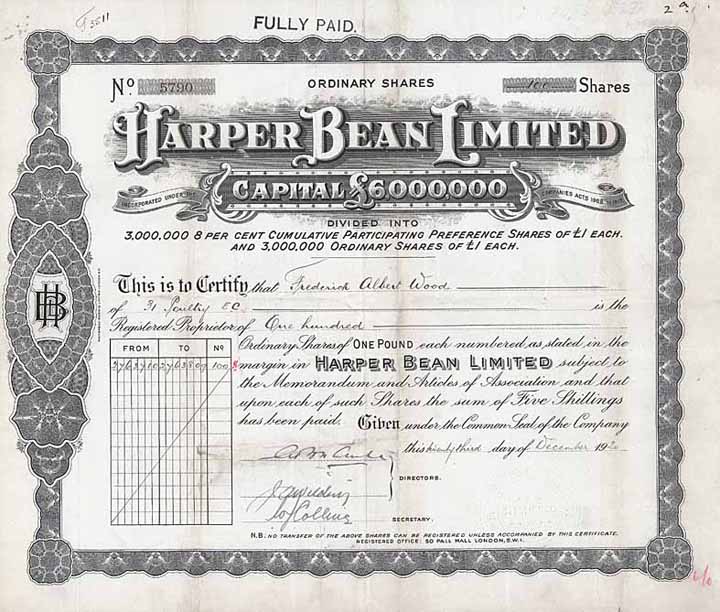 FULLY PAID.
No 5790 ORDINARY SHARES 100 Shares
HARPER BEAN LIMITED
CAPITAL £6000000
INCORPORATED UNDER THE COMPANIES ACTS 1908 TO 1917
DIVIDED INTO
3,000,000 8 PER CENT CUMULATIVE PARTICIPATING PREFERENCE SHARES OF £1 EACH.
AND 3,000,000 ORDINARY SHARES OF £1 EACH.
This is to Certify that Frederick Albert Wood
of 31 Poultry E.C. is the
Registered Proprietor of One hundred
Ordinary Shares of ONE POUND each numbered as stated in the
margin in HARPER BEAN LIMITED subject to
the Memorandum and Articles of Association and that
upon each of such Shares the sum of Five Shillings
has been paid. Given under the Common Seal of the Company
this twenty third day of December 1920
FROM TO No
2763710 2763809 100
HB
DIRECTORS.
SECRETARY.
N.B. NO TRANSFER OF THE ABOVE SHARES CAN BE REGISTERED UNLESS ACCOMPANIED BY THIS CERTIFICATE.
REGISTERED OFFICE: 50 PALL MALL LONDON, S.W.1.